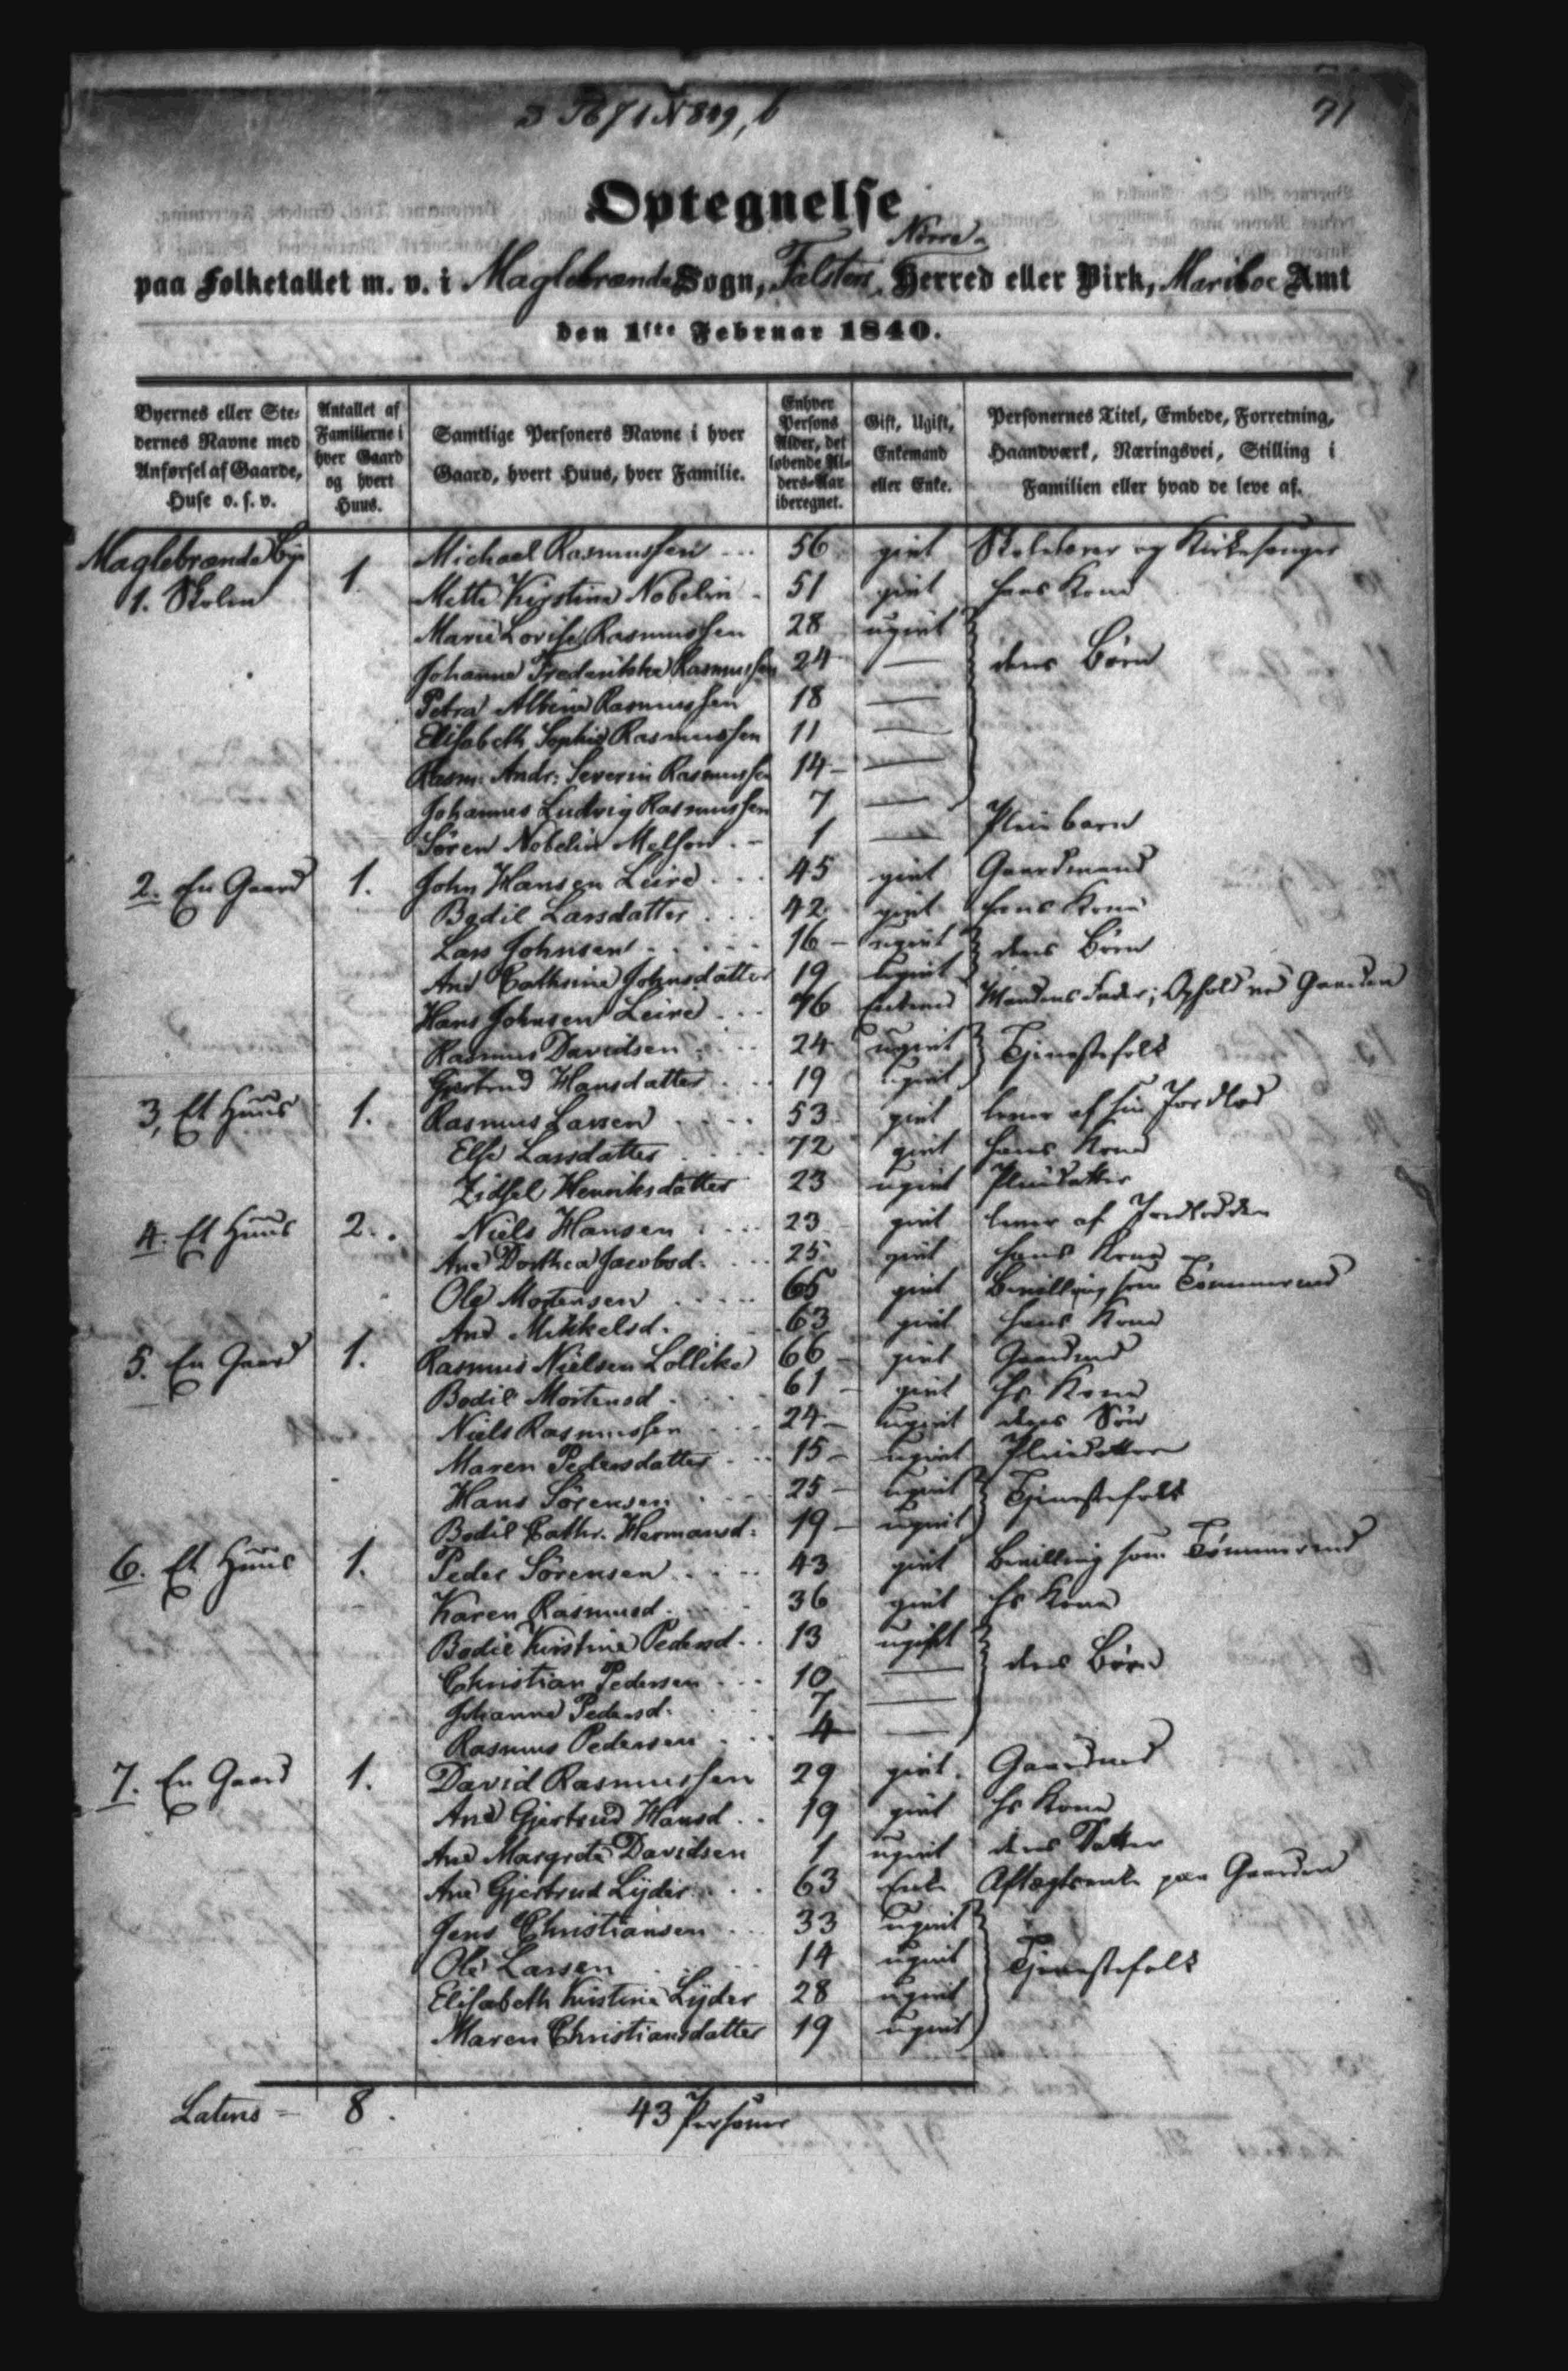 71
Optegnelse
Nörre-
paa Folketallet m. v. i Maglebrænde Sogn, Falsters Herred eller Birk, Mariboe Amt
den 1ste Februar 1840.
Byernes eller Ste-
dernes Navne med
Anførsel af Gaarde,
Huse o. s. v.
Antallet af
Familierne i
hver Gaard
og hvert
Huus.
Samtlige Personers Navne i hver
Gaard, hvert Huus, hver Familie.
Enhver
Persons
Alder, det
løbende Al-
ders-Aar
iberegnet.
Gift, Ugift,
Enkemand
eller Enke.
Personernes Titel, Embede, Forretning,
Haandværk, Næringsvei, Stilling i
Familien eller hvad de leve af.
Maglebrænde Bye
1. Skolen 1 Michael Rasmussen 56 givt Skolelærer og Kirkesanger
Mette Kirstine Nobelin 51 givt hans Kone
Marie Lovise Rasmussen 28 ugivt
Johanne Frederikke Rasmussen 24 — deres Börn
Petra Albine Rasmussen 18 —
Elisabeth Sophie Rasmussen 11 —
Rasm: Andr: Severin Rasmussen 14 —
Johannes Ludvig Rasmussen 7 —
Sören Nobelin 1 — Pleiebarn
2. En Gaard 1. John Hansen Leire 45 givt Gaardmand
Bodil Larsdatter 42 givt hans Kone
Lars Johnsen 16 ugivt deres Börn
Ane Cathrine Johnsdatter 19 ugivt
Hans Johnsen Leire 76 Enkemd Mandens Fader; Ophold ved Gaarden
Rasmus Davidsen 24 ugivt Tjenestefolk
Gjertrud Hansdatter 19 ugivt
3, Et Huus 1. Rasmus Larsen 53 givt lever af sin Jordlod
Else Larsdatter 72 givt hans Kone
Zidsel Henriksdatter 23 ugivt Pleiedatter
4. Et Huus 2. Niels Hansen 23 givt lever af Jordlodden
Ane Dorthea Jacobsd. 25 givt hans Kone
Ole Mortensen 65 givt Bevilling som Tömmermd
Ane Mikkelsd. 63 givt hans Kone
5. En Gaard 1. Rasmus Nielsen Lollike 66 givt Gaardmd
Bodil Mortensd. 61 givt hs Kone
Niels Rasmussen 24 ugivt deres Sön
Maren Pedersdatter 15 ugivt Pleiedatter
Hans Sörensen 25 ugivt Tjenestefolk
Bodil Cathr. Hermansd: 19 ugivt
6. Et Huus 1. Peder Sörensen 43 givt Bevilling som Tömmermd
Karen Rasmusd. 36 givt hs Kone
Bodil Kirstine Pedersd. 13 ugift
Christian Pedersen 10 — deres Börn
Johanne Pedersd. 7 —
Rasmus Pedersen 4 —
7. En Gaard 1. David Rasmussen 29 givt Gaardmd
Ane Gjertrud Hansd. 19 givt hs Kone
Ane Margrete Davidsen 1 ugivt deres Datter
Ane Gjertrud Lÿder 63 Enke Aftægtsenke paa Gaarden
Jens Christiansen 33 ugivt
Ole Larsen 14 ugivt Tjenestefolk
Elisabeth Kirstine Lÿder 28 ugivt
Maren Christiansdatter 19 ugivt
Latus = 8. 43 Personer